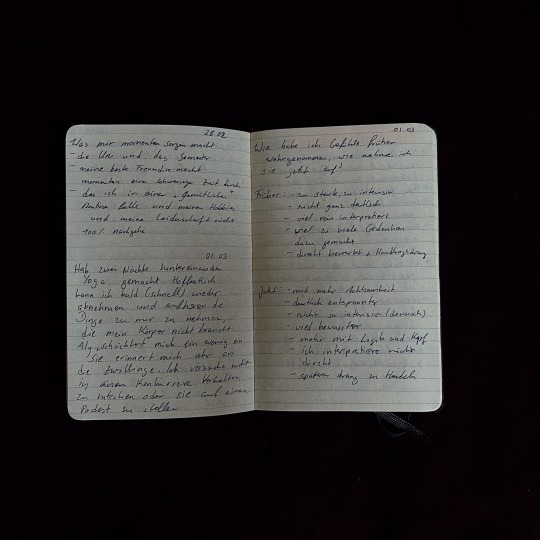 28.02
Was mir momentan Sorgen macht
- die Uni und das Semester
- meine beste Freundin macht
momentan eine schwierige Zeit durch
- das ich in einer "gemütlichen"
Routine falle und meinen Hobbies
und meine Leidenschaft nicht
100% nachgehe
01.03
Hab zwei Nächte hintereinander
Yoga gemacht. Hoffentlich
kann ich bald (schnell) wieder
abnehmen und aufhören die
Dinge zu mir zu nehmen,
die mein Körper nicht braucht.
schüchtert mich ein wenig ein
sie erinnert mich sehr an
die Zwillinge. Ich versuche nicht
in einen Konkurrenz Verhalten
zu rutschen oder sie auf einen
Podest zu stellen
01.03
Wie habe ich Gefühle früher
wahrgenommen, wie nehme ich
sie jetzt auf?
Früher: - zu stark, zu intensiv
- nicht ganz deutlich
- viel rein interpretiert
- viel zu viele Gedanken
dazu gemacht
- direkt bewertet + Handlungsdrang
Jetzt: - mit mehr Achtsamkeit
- deutlich entspannter
- nicht so intensiv (dennoch)
- viel bewusster
- mehr mit Logik und Kopf
- ich interpretiere nicht
direkt
- späteren Drang zu Handeln